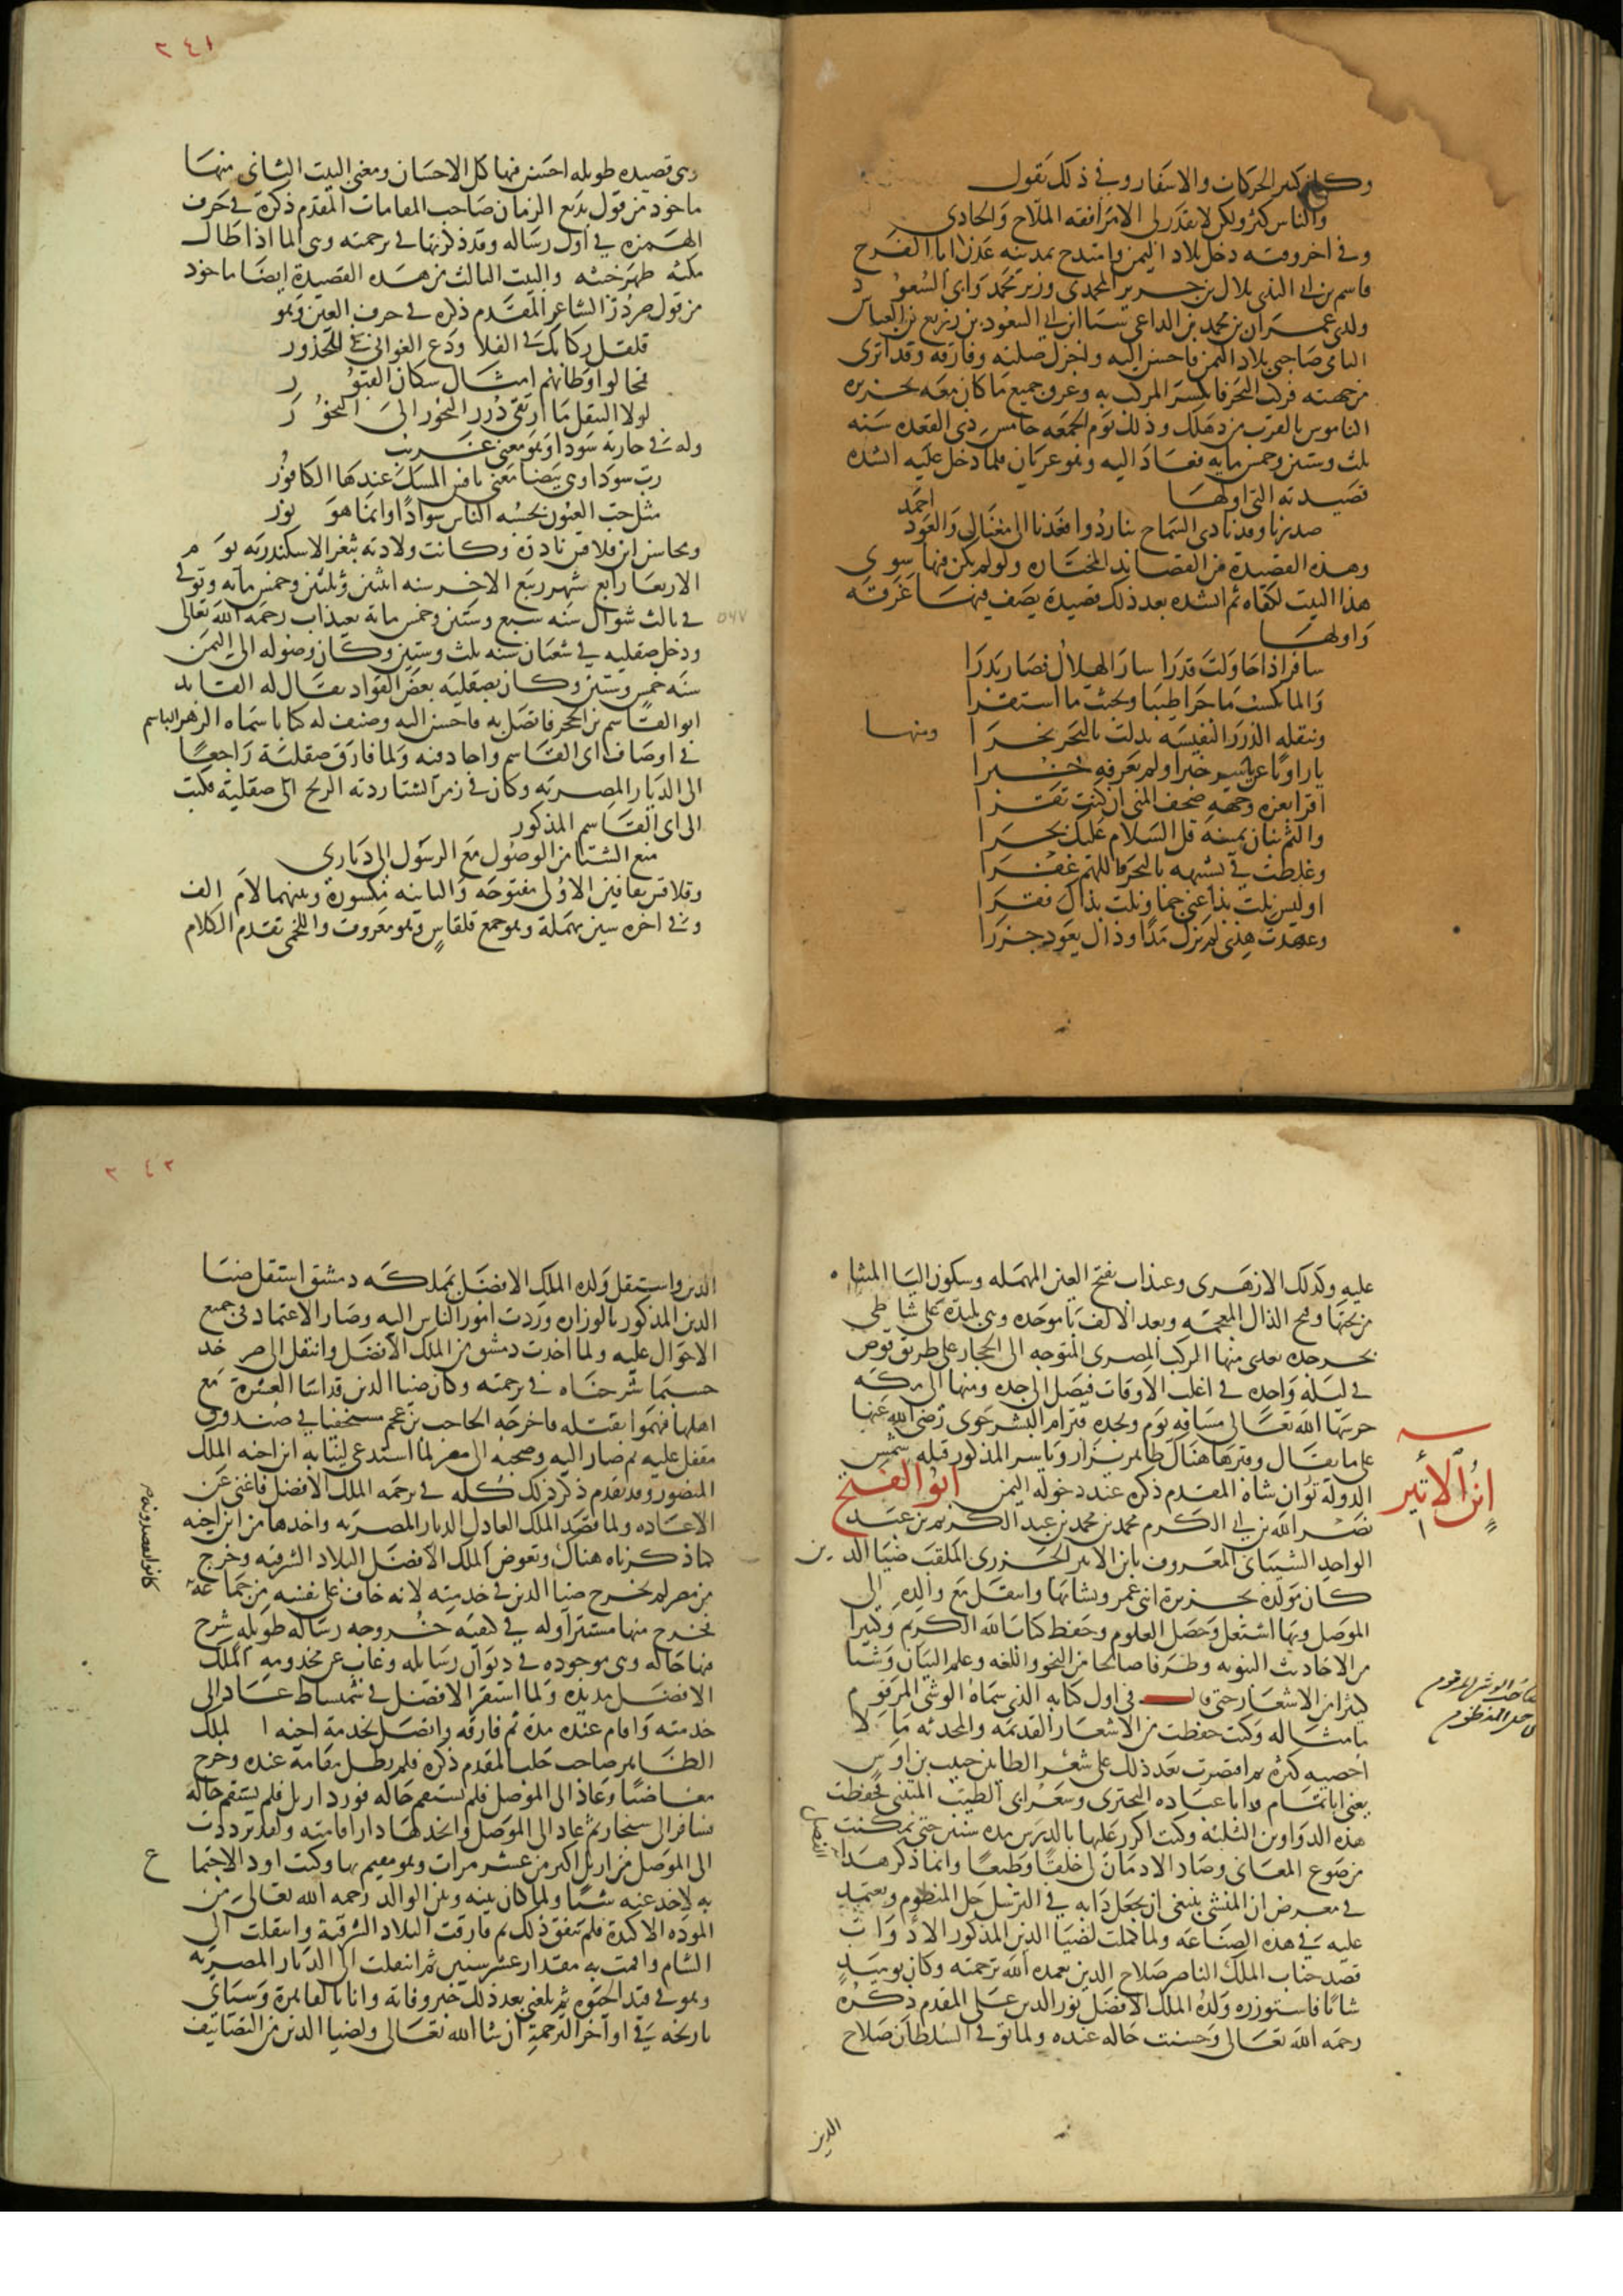 وكان كثير الحركات والاسفار وفي ذلك يقول
والناس كثر ولكن لا يقدر لي الا مرافقه الملاح والحادي
وفي اخر وقته دخل بلاد اليمن وامتدح بمدينه عدن ابا الفرج
ياسر بن ابي الندى بلال بن جرير المحمدي وزير محمد وابي السعود
ولدي عمران بن محمد بن الداعي سبا ابن ابي السعود بن زريع بن العباس
اليامي صاحبي بلاد اليمن فاحسن اليه واجزل صلته وفارقه وقد اثرى
من جهته فركب البحر فانكسر المركب به وغرق جميع ما كان معه بجزيره
الناموس بالقرب من دهلك وذلك يوم الجمعه خامس ذي القعده سنه
ثلث وستين وخمس مايه فعاد اليه وهو عريان فلما دخل عليه انشده
قصيدته التي اولها
صدرنا وقد نادى السماح بنا ردوا فعدنا الى مغناك والعود احمد
وهذه القصيدة من القصايد المختاره ولو لم يكن فيها سوى
هذا البيت لكفاه ثم انشده بعد ذلك قصيدة يصف فيها غرقه
واولها
سافر اذا حاولت قدرا سار الهلال فصار بدرا
والما يكسب ما جرا طيبا ويخبث ما استقرا
وبنقله الدرر النفيسه بدلت بالبحر نحرا ومنها
يا راويا عن ياسر خبرا ولم يعرفه خبرا
اقرا بغره وجهه صحف المنى ان كنت تقرا
والثم بنان يمينه قل السلام عليك بحرا
وغلطت في تشبيهه بالبحر فاللهم غفرا
اوليس نلت بذا غنى جما ونلت بذاك فقرا
وعهدت هذي لم يزل مدا وذاك يعود جزرا
٢٤١
وهي قصيده طويله احسن فيها كل الاحسان ومعنى البيت الثاني منها
ماخوذ من قول بديع الزمان صاحب المقامات المقدم ذكره في حرف
الهمزه في اول رساله وقد ذكرتها في ترجمته وهي الما اذا طال
مكثه ظهر خبثه والبيت الثالث من هذه القصيدة ايضا ماخوذ
من قول صردر الشاعر المقدم ذكره في حرف العين وهو
قلقل ركابك في الفلا ودع الغواني للخدور
فمحالفوا اوطانهم امثال سكان القبور
لولا التنقل ما ارتقى درر البحور الى النحور
وله في جاريه سودا وهو معنى غريب
رب سودا وهي بيضا معنى نافس المسك عندها الكافور
مثل حب العيون يحسبه الناس سوادا وانما هو نور
ومحاسن ابن قلاقس نادرة وكانت ولادته بثغر الاسكندريه يوم
الاربعا رابع شهر ربيع الاخر سنه اثنين وثلثين وخمس مايه وتوفي
في ثالث شوال سنه سبع وستين وخمس ماية بعيذاب رحمه الله تعالى
٥٦٧
ودخل صقليه في شعبان سنه ثلث وستين وكان وصوله الى اليمن
سنه خمس وستين وكان بصقليه بعض القواد يقال له القايد
ابو القاسم بن الحجر فاتصل به فاحسن اليه وصنف له كتابا سماه الزهر الباسم
في اوصاف ابي القاسم واجاد فيه ولما فارق صقلية راجعا
الى الديار المصريه وكان في زمن الشتا ردته الريح الى صقلية فكتب
الى ابي القاسم المذكور
منع الشتا من الوصول مع الرسول الى دياري
وقلاقس بقافين الاولى مفتوحه والثانيه مكسورة وبينهما لام الف
وفي اخره سين مهملة وهو جمع قلقاس وهو معروف واللخمي تقدم الكلام
عليه وكذلك الازهري وعيذاب بفتح العين المهمله وسكون اليا المثناه
من تحتها وفتح الذال المعجمه وبعد الالف با موحده وهي بليدة على شاطي
بحر جده يعدي منها المركب المصري المتوجه الى الحجاز على طريق قوص
في ليلة واحده في اغلب الاوقات فيصل الى جده ومنها الى مكه
حرسها الله تعالى مسافه يوم وبجده قبر ام البشر حوى رضي الله عنها
على ما يقال وقبرها هناك ظاهر يزار وياسر المذكور قتله شمس
الدولة توران شاه المقدم ذكره عند دخوله اليمن ابو الفتح
ابن الأثير
نصر الله بن ابي الكرم محمد بن محمد بن عبد الكريم بن عبد
الواحد الشيباني المعروف بابن الاثير الجزري الملقب ضيا الدين
كان مولده بجزيرة ابن عمر ونشا بها وانتقل مع والده الى
الموصل وبها اشتغل وحصل العلوم وحفظ كتاب الله الكريم وكثيرا
من الاحاديث النبويه وطرفا صالحا من النحو واللغه وعلم البيان وشيا
كثيرا من الاشعار حتى قال في اول كتابه الذي سماه الوشي المرقوم
صاحب الوشي المرقوم
في حل المنظوم
ما مثاله وكنت حفظت من الاشعار القديمه والمحدثه ما لا
احصيه كثره ثم اقتصرت بعد ذلك على شعر الطايين حبيب بن اوس
يعني ابا تمام وابا عباده البحتري وشعر ابي الطيب المتنبي فحفظت
هذه الدواوين الثلثه وكنت اكرر عليها بالدرس مده سنين حتى تمكنت
من صوغ المعاني وصار الادمان لي خلقا وطبعا وانما ذكر هذا
في معرض ان المنشي ينبغي ان يجعل دابه في الترسل حل المنظوم ويعتمد
عليه في هذه الصناعه ولما كملت لضيا الدين المذكور الادوات
قصد جناب الملك الناصر صلاح الدين تغمده الله برحمته وكان يوميذ
شابا فاستوزره ولده الملك الافضل نور الدين علي المقدم ذكره
رحمه الله تعالى وحسنت حاله عنده ولما توفي السلطان صلاح
الدين
٢٤٢
الدين واستقل ولده الملك الافضل بمملكه دمشق استقل ضيا
الدين المذكور بالوزاره وردت امور الناس اليه وصار الاعتماد في جميع
الاحوال عليه ولما اخذت دمشق من الملك الافضل وانتقل الى صرخد
حسبما شرحناه في ترجمته وكان ضيا الدين قد اسا العشرة مع
اهلها فهموا بقتله فاخرجه الحاجب بن عجم مستخفيا في صندوق
مقفل عليه ثم صار اليه وصحبه الى مصر لما استدعي لنيابه ابن اخيه الملك
المنصور وقد تقدم ذكر ذلك كله في ترجمه الملك الافضل فاغنى عن
الاعاده ولما قصد الملك العادل الديار المصريه واخذها من ابن اخيه
كما ذكرناه هناك وتعوض الملك الافضل البلاد الشرقيه وخرج
من مصر لم يخرج ضيا الدين في خدمته لانه خاف على نفسه من جماعة
كانوا يقصدونه
فخرج منها مستترا وله في كيفيه خروجه رساله طويله شرح
فيها حاله وهي موجوده في ديوان رسايله وغاب عن مخدومه الملك
الافضل مديده ولما استقر الافضل في سميساط عاد الى
خدمته واقام عنده مدة ثم فارقه واتصل بخدمة اخيه الملك
الظاهر صاحب حلب المقدم ذكره فلم يطل مقامه عنده وخرج
مغاضبا وعاد الى الموصل فلم يستقم حاله فورد اربل فلم يستقم حاله
فسافر الى سنجار ثم عاد الى الموصل واتخذها دار اقامته ولقد ترددت
الى الموصل من اربل اكثر من عشر مرات وهو مقيم بها وكنت اود الاجتماع
به لاخذ عنه شيا ولما كان بينه وبين الوالد رحمه الله تعالى من
الموده الاكيدة فلم يتفق ذلك ثم فارقت البلاد الشرقية وانتقلت الى
الشام واقمت به مقدار عشر سنين ثم انتقلت الى الديار المصريه
وهو في قيد الحيوه ثم بلغني بعد ذلك خبر وفاته وانا بالقاهرة وسياتي
تاريخه في اواخر الترجمة ان شا الله تعالى ولضيا الدين من التصانيف